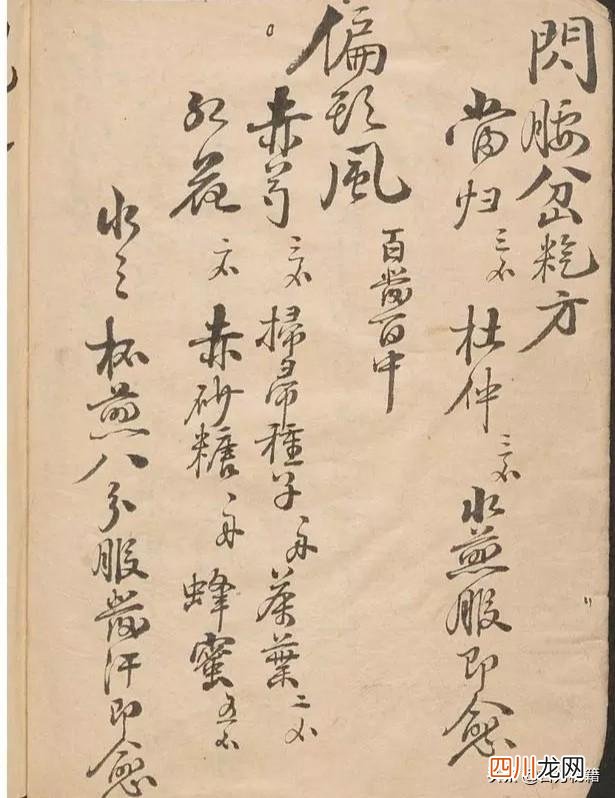 閃腰岔氣方
當归三钱 杜仲三钱 水煎服即愈
偏頭風 百發百中
赤芍二钱 掃帚種子一両 茶葉二钱
红花二钱 赤砂糖一両 蜂蜜五钱
水三杯煎八分服發汗即愈
四川龙网